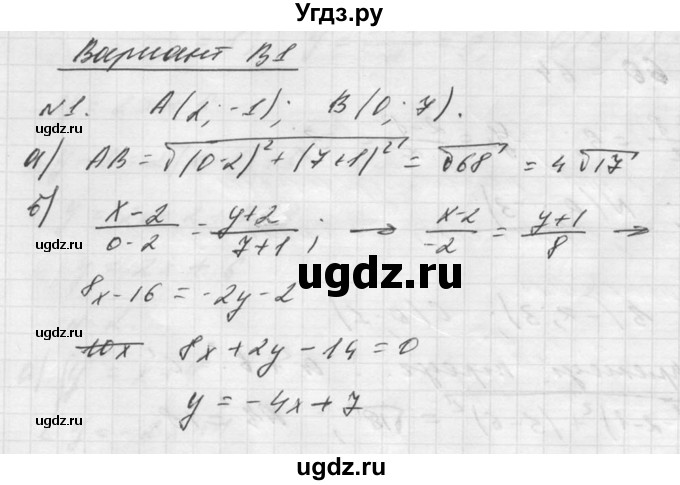 Угдз.ру
Вариант В1
№1. A(2; -1); B(0; 7).
а) AB = √((0-2)² + (7+1)²) = √68 = 4√17
б) (x-2)/(0-2) = (y+2)/(7+1); → (x-2)/(-2) = (y+1)/8 →
8x-16 = -2y-2
10x 8x+2y-14=0
y = -4x+7
ugdz.ru
ugdz.ru
ugdz.ru
ugdz.ru
ugdz.ru
ugdz.ru
ugdz.ru
ugdz.ru